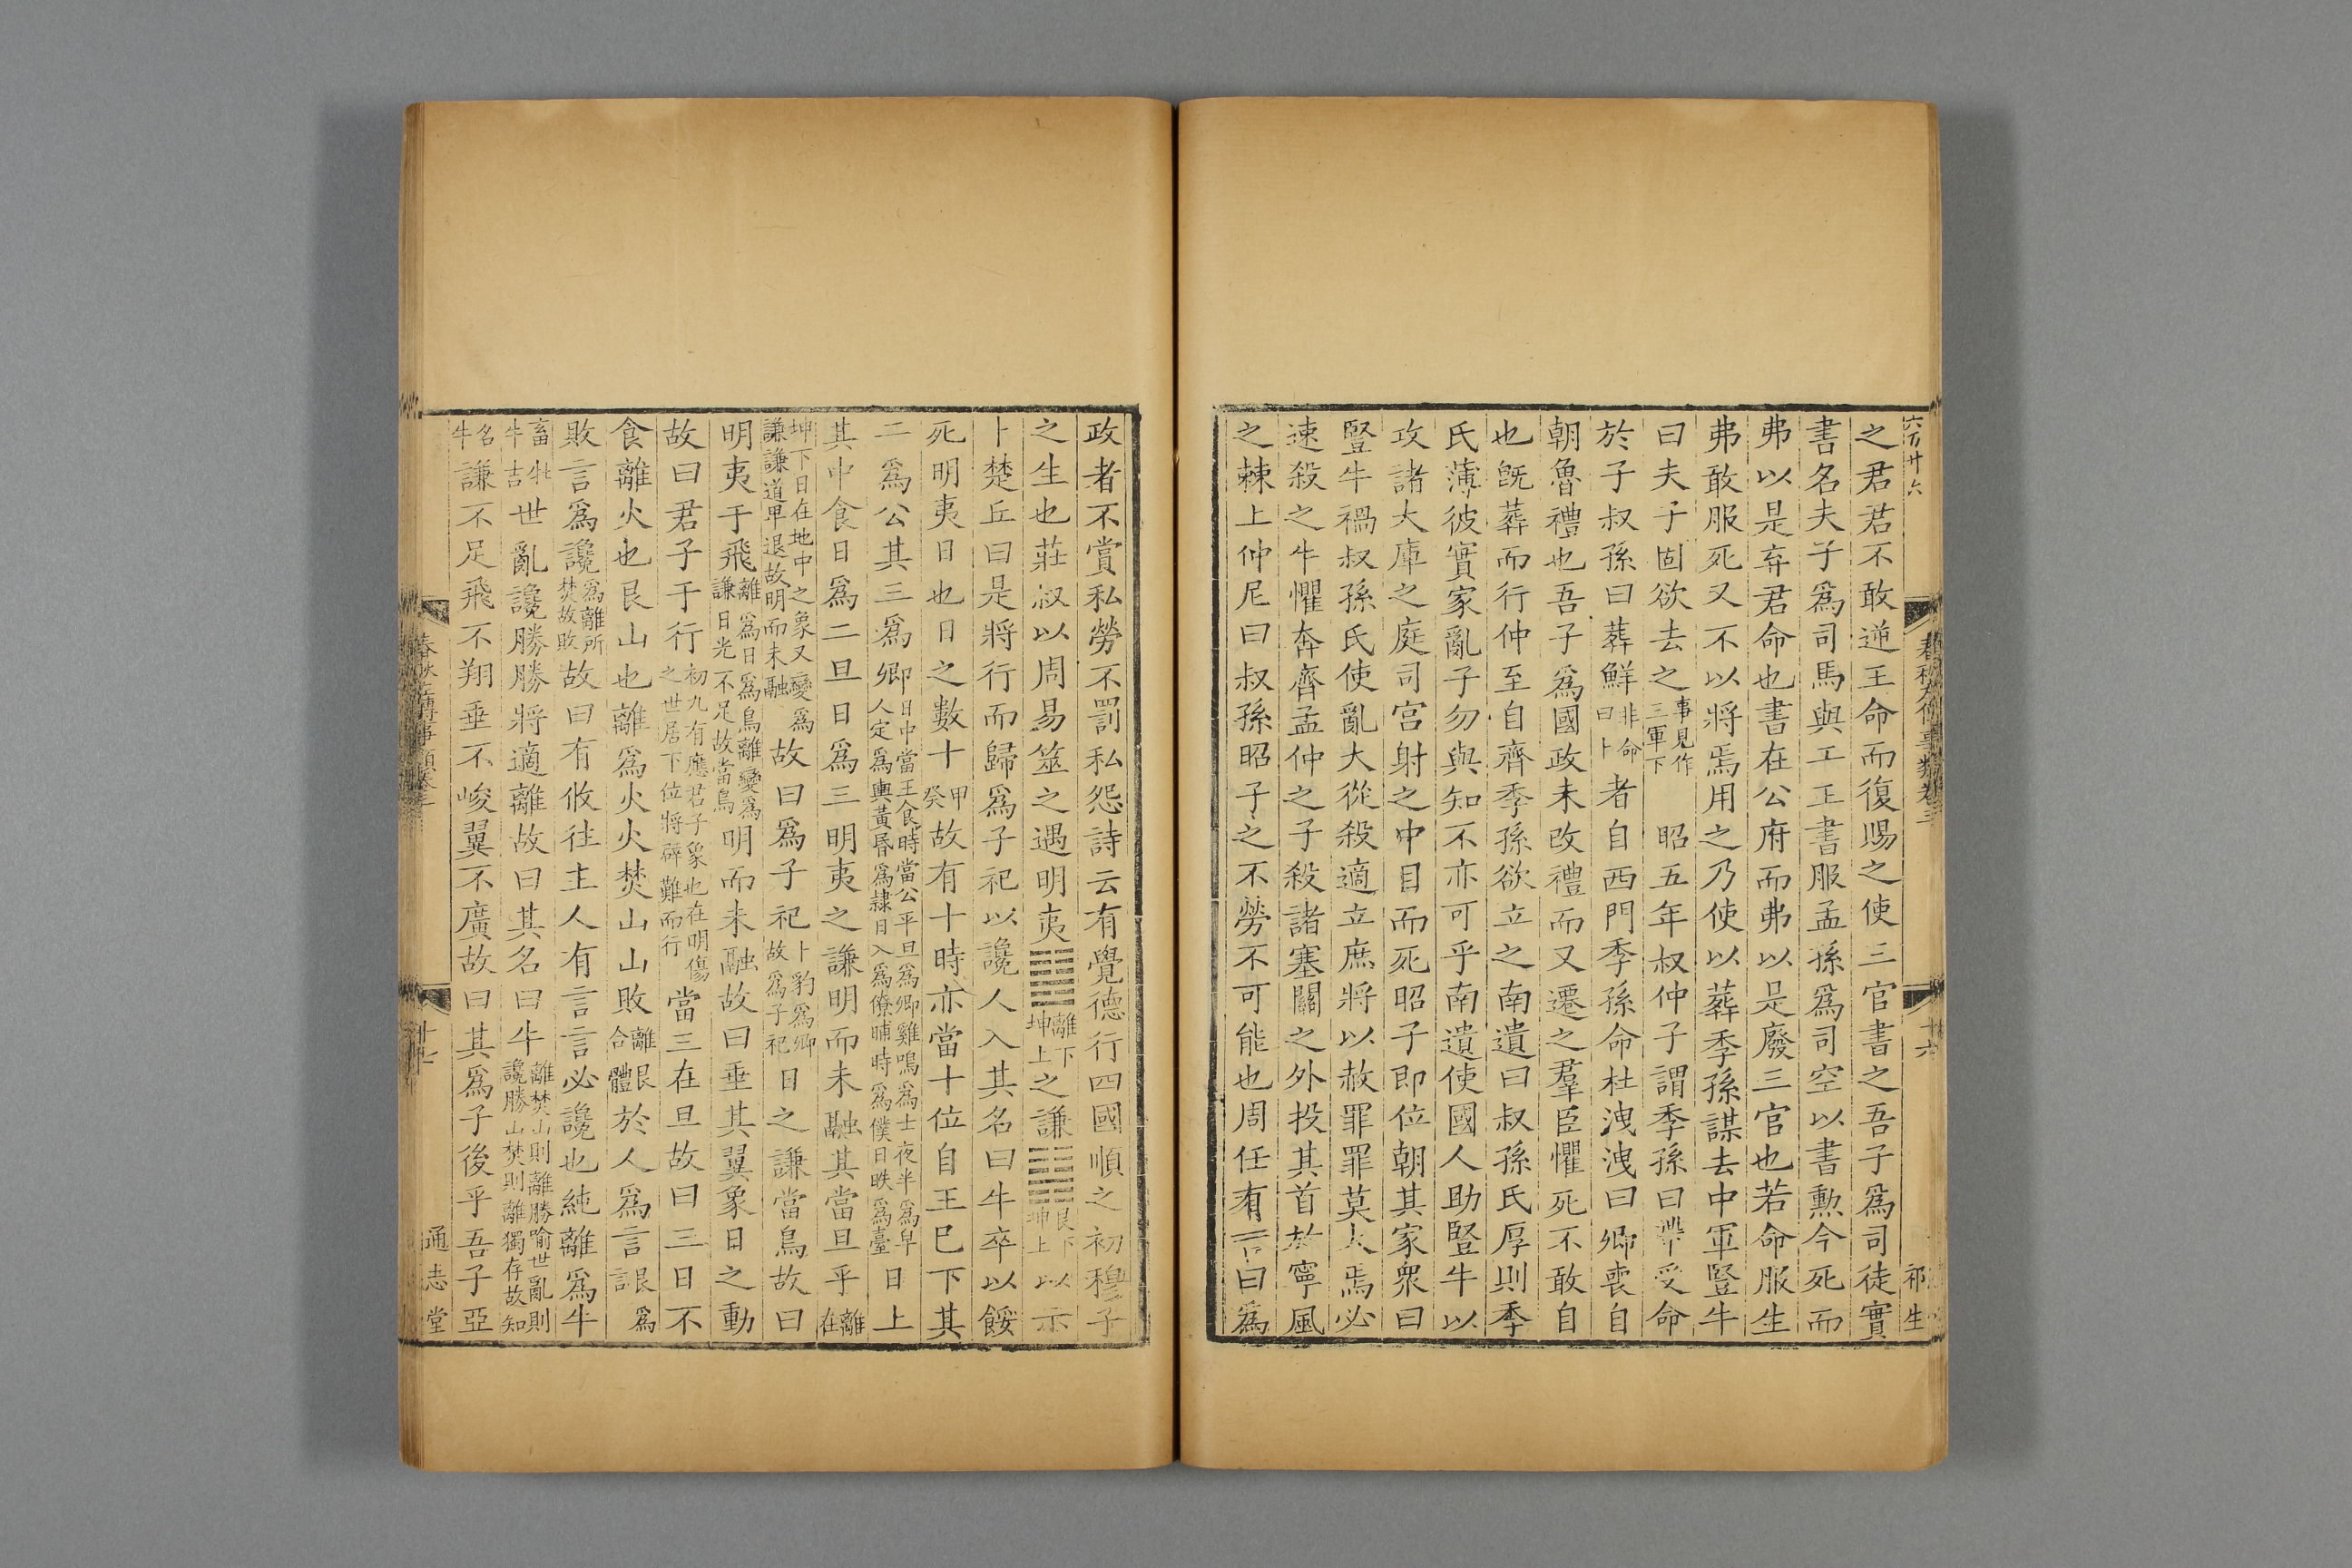 六百廿六
春秋左傳事類卷三
十六
祁生
之君君不敢逆王命而復賜之使三官書之吾子爲司徒實
書名夫子爲司馬與工正書服孟孫爲司空以書勲今死而
弗以是弃君命也書在公府而弗以是廢三官也若命服生
弗敢服死又不以將焉用之乃使以葬季孫謀去中軍豎牛
曰夫子固欲去之事見作三軍下昭五年叔仲子謂季孫曰帶受命
於子叔孫曰葬鮮非命曰卜者自西門季孫命杜洩洩曰卿喪自
朝魯禮也吾子爲國政未改禮而又遷之羣臣懼死不敢自
也旣葬而行仲至自齊季孫欲立之南遺曰叔孫氏厚則季
氏薄彼實家亂子勿與知不亦可乎南遺使國人助豎牛以
攻諸大庫之庭司宮射之中目而死昭子即位朝其家衆曰
豎牛禍叔孫氏使亂大從殺適立庶將以赦罪罪莫大焉必
速殺之牛懼奔齊孟仲之子殺諸塞關之外投其首於寧風
之棘上仲尼曰叔孫昭子之不勞不可能也周任有言曰爲
政者不賞私勞不罰私怨詩云有覺德行四國順之初穆子
之生也莊叔以周易筮之遇明夷離下坤上之謙艮下坤上以示
卜楚丘曰是將行而歸爲子祀以讒人入其名曰牛卒以餒
死明夷日也日之數十甲癸故有十時亦當十位自王巳下其
二爲公其三爲卿日中當王食時當公平旦爲卿雞鳴爲士夜半爲皁人定爲輿黃昏爲隷日入爲僚晡時爲僕日昳爲臺日上
其中食日爲二旦日爲三明夷之謙明而未融其當旦乎離在
坤下日在地中之象又變爲謙謙道卑退故明而未融故曰爲子祀卜豹爲卿故爲子祀日之謙當鳥故曰
明夷于飛離爲日爲鳥離變爲謙日光不足故當鳥明而未融故曰垂其翼象日之動
故曰君子于行初九有應君子象也在明傷之世居下位將辟難而行當三在旦故曰三日不
食離火也艮山也離爲火火焚山山敗離艮合體於人爲言艮爲言
敗言爲讒爲離所焚故敗故曰有攸往主人有言言必讒也純離爲牛
畜牝牛吉世亂讒勝勝將適離故曰其名曰牛離焚山則離勝喻世亂則讒勝山焚則離獨存故知
名牛謙不足飛不翔垂不峻翼不廣故曰其爲子後乎吾子亞
春秋左傳事類卷三
十七
通志堂